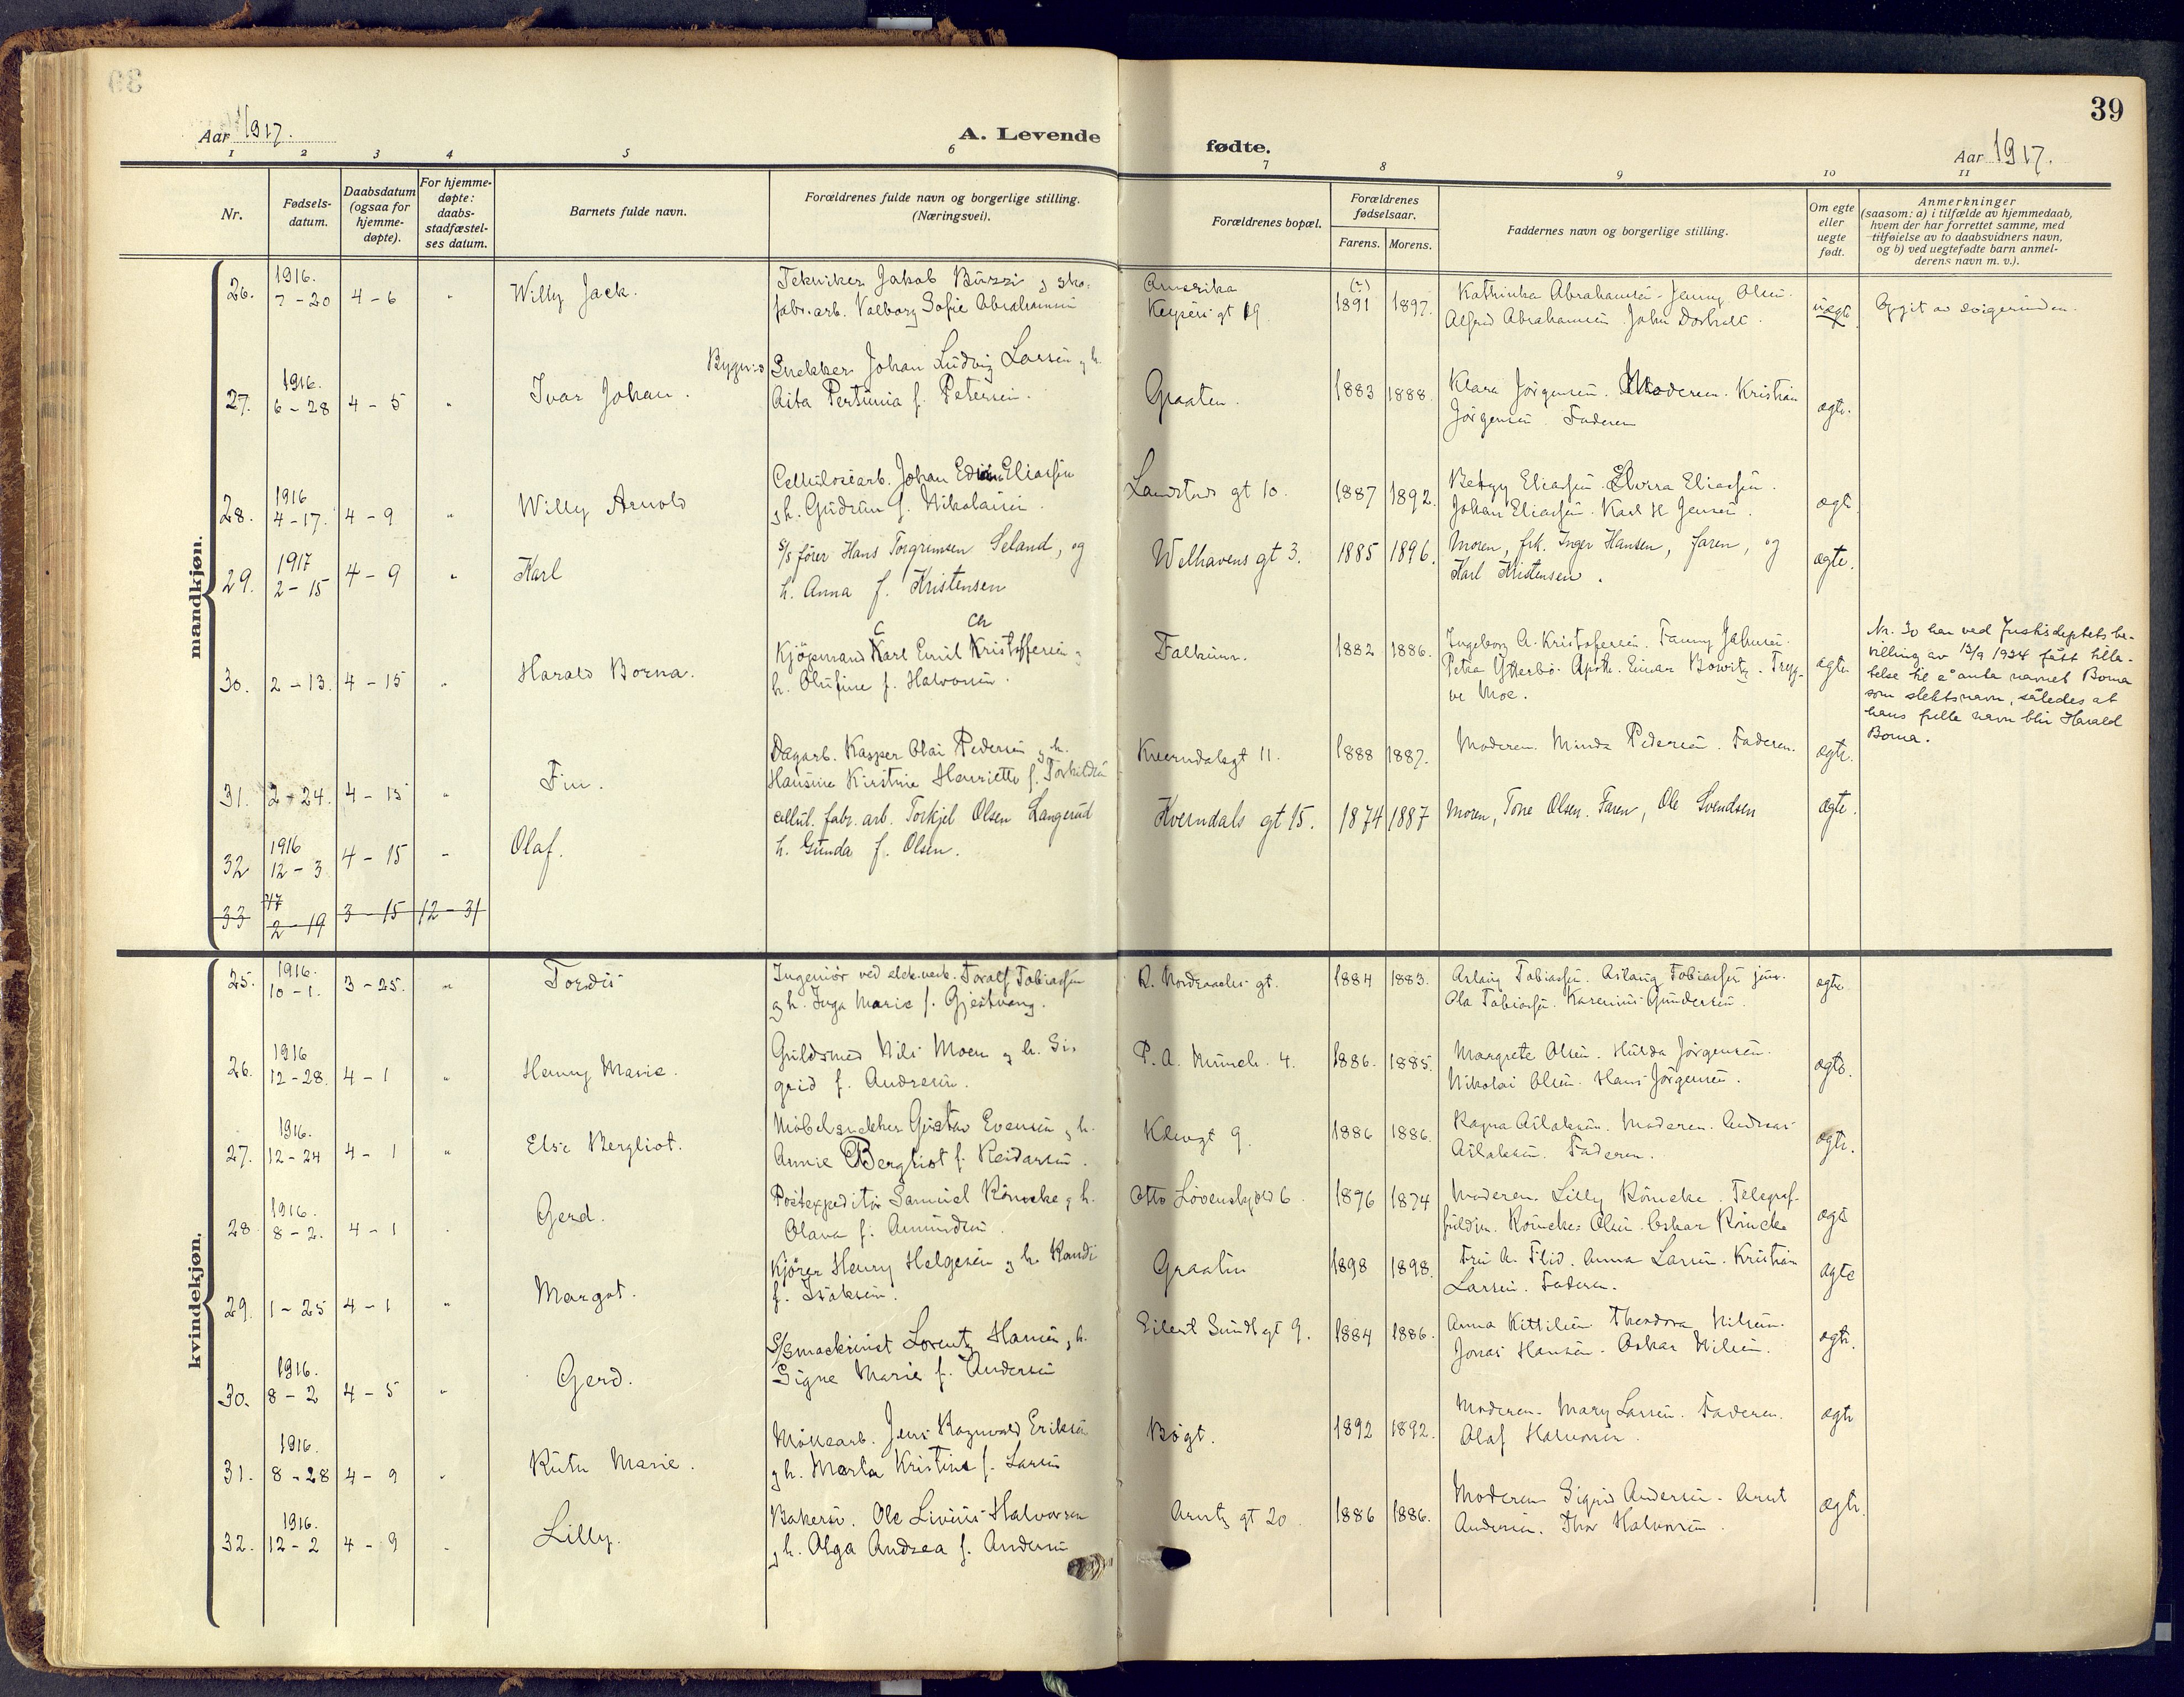 39
Aar 1917.
A. Levende
fødte.
Aar 1917.
1 2 3 4 5 6 7 8 9 10 11
Nr.
Fødsels-
datum.
Daabsdatum
(ogsaa for
hjemme-
døpte).
For hjemme-
døpte:
daabs-
stadfæstel-
ses datum.
Barnets fulde navn.
Forældrenes fulde navn og borgerlige stilling.
(Næringsvei).
Forældrenes bopæl.
Forældrenes
fødselsaar.
Farens. Morens.
Faddernes navn og borgerlige stilling.
Om egte
eller
uegte
født.
Anmerkninger
(saasom: a) i tilfælde av hjemmedaab,
hvem der har forrettet samme, med
tilføielse av to daabsvidners navn,
og b) ved uegtefødte barn anmel-
derens navn m. v.).
mandkjøn.
26. 1916. 7-20 4-6 " Willy Jack.
Tekniker Jakob Bürzi og sko-
fabr.arb. Valborg Sofie Abrahamsen
Amerika
Keysers gt 19.
(?)
1891 1897.
Kathinka Abrahamsen. Jenny Olsen.
Alfred Abrahamsen. John
uægte
Opgit av svigerinden.
27. 1916. 6-28 4-5 " Ivar Johan.
Bygn:s Snekker Johan Ludvig Larsen og h.
Petersen.
Graaten. 1883 1888.
Klara Jörgensen. Moderen. Kristian
Jörgensen. Faderen
ægte.
28. 1916 4-17. 4-9 " Willy Arnold
Cellulosearb. Johan Edvin Eliassen
og h. Gudrun f. Nikolaisen.
Landstads gt 10. 1887 1892.
Betzy Eliassen. Elvira Eliassen.
Johan Eliassen. Karl H Jensen.
ægte.
29. 1917 2-15 4-9 " Karl
S/S fører Hans Torgrimsen Seland, og
h. Anna f. Kristensen
Welhavens gt 3. 1885 1896.
Moren, frk. Inger Hansen, faren, og
Karl Kristensen.
ægte.
30. 2-13. 4-15 " Harald Borna.
C Ch
Kjöpmand Karl Emil Kristoffersen og
h. Olufine f. Halvorsen.
Falkum. 1882 1886.
Ingeborg A. Kristofersen. Fanny Jahnsen.
Petra Ytterbö. Apoth. Einar Bowitz. Tryg-
ve Moe.
ægte.
Nr. 30 har ved Justisdeptets be-
villing av 13/9 1934 fått tilla-
telse til å anta navnet Borna
som slektsnavn, således at
hans fulle navn blir Harald
Borna.
31. 2-24. 4-15 " Fin.
Dagarb. Kasper Olai Pedersen og h.
Hansine Kirstine Henriette f. Torkildsen
Kverndalsgt 11. 1888 1887.
Moderen. Minda Pedersen. Faderen.
ægte.
32 1916 12-3 4-15 " Olaf.
cellul. fabr. arb. Torkjel Olsen Langerud
h. Gunda f. Olsen.
Kverndals gt 15. 1874 1887
Moren, Tone Olsen. Faren, Ole Svendsen
ægte.
33 17 2-19 3-15 12-31
kvindekjøn.
25. 1916. 10-1. 3-25. " Tordis
Ingeniør ved elek.verk. Toralf Tobiassen
og h. Inga Marie f. Gjestvang.
R. Nordraaks gt. 1884 1883.
Aslaug Tobiassen. Aslaug Tobiassen jun.
Ola Tobiassen. Karenius Gundersen.
ægte.
26. 1916 12-28. 4-1 " Henny Marie.
Guldsmed Nils Moen og h. Si-
grid f. Andresen.
P. A. Munchs. 4. 1886. 1885.
Margrete Olsen. Hulda Jörgensen.
Nikolai Olsen. Hans Jörgensen.
ægte.
27. 1916. 12-24 4-1 " Else Bergliot.
Möbelsnekker Gustav Evensen og h.
Annie Bergliot f. Reidarsen.
Klevgt 9. 1886 1886.
Ragna Aslaksen. Moderen. Andreas
Aslaksen. Faderen.
ægte.
28. 1916. 8-2. 4-1 " Gerd.
Postexpeditör Samuel Röneke og h.
Olava f. Amundsen.
Otto Lövenskjold 6. 1896 1874
Moderen. Lilly Röneke. Telegraf-
fuldm. Röneke. Olsen. Oskar Röneke
ægte
29. 1-25 4-1 " Margot.
Kjörer Henry Helgesen og h. Randi
f. Isaksen.
Graaten 1898 1898.
Fru A. Flid. Anna Larsen. Kristian
Larsen. Faderen.
ægte
30. 1916. 8-2 4-5 " Gerd.
S/Smaskinist Lorentz Hansen og h.
Signe Marie f. Andersen
Eilert Sundt gt 9. 1884 1886.
Anna Kittilsen Theodora Nilsen.
Jonas Hansen. Oskar Nilsen.
ægte.
31. 1916. 8-28 4-9 " Ruth Marie.
Möllearb. Jens Ragnvald Eriksen
og h. Marta Kristine f. Larsen
Bögt. 1892 1892.
Moderen. Mary Larsen. Faderen.
Olaf Halvorsen.
ægte
32. 1916. 12-2 4-9 " Lilly.
Bakersv. Ole Livius Halvorsen
og h. Olga Andrea f. Andersen
Arentz gt 20. 1886 1886.
Moderen Sigrid Andersen. Arnt
Andersen. Thor Halvorsen.
ægte.